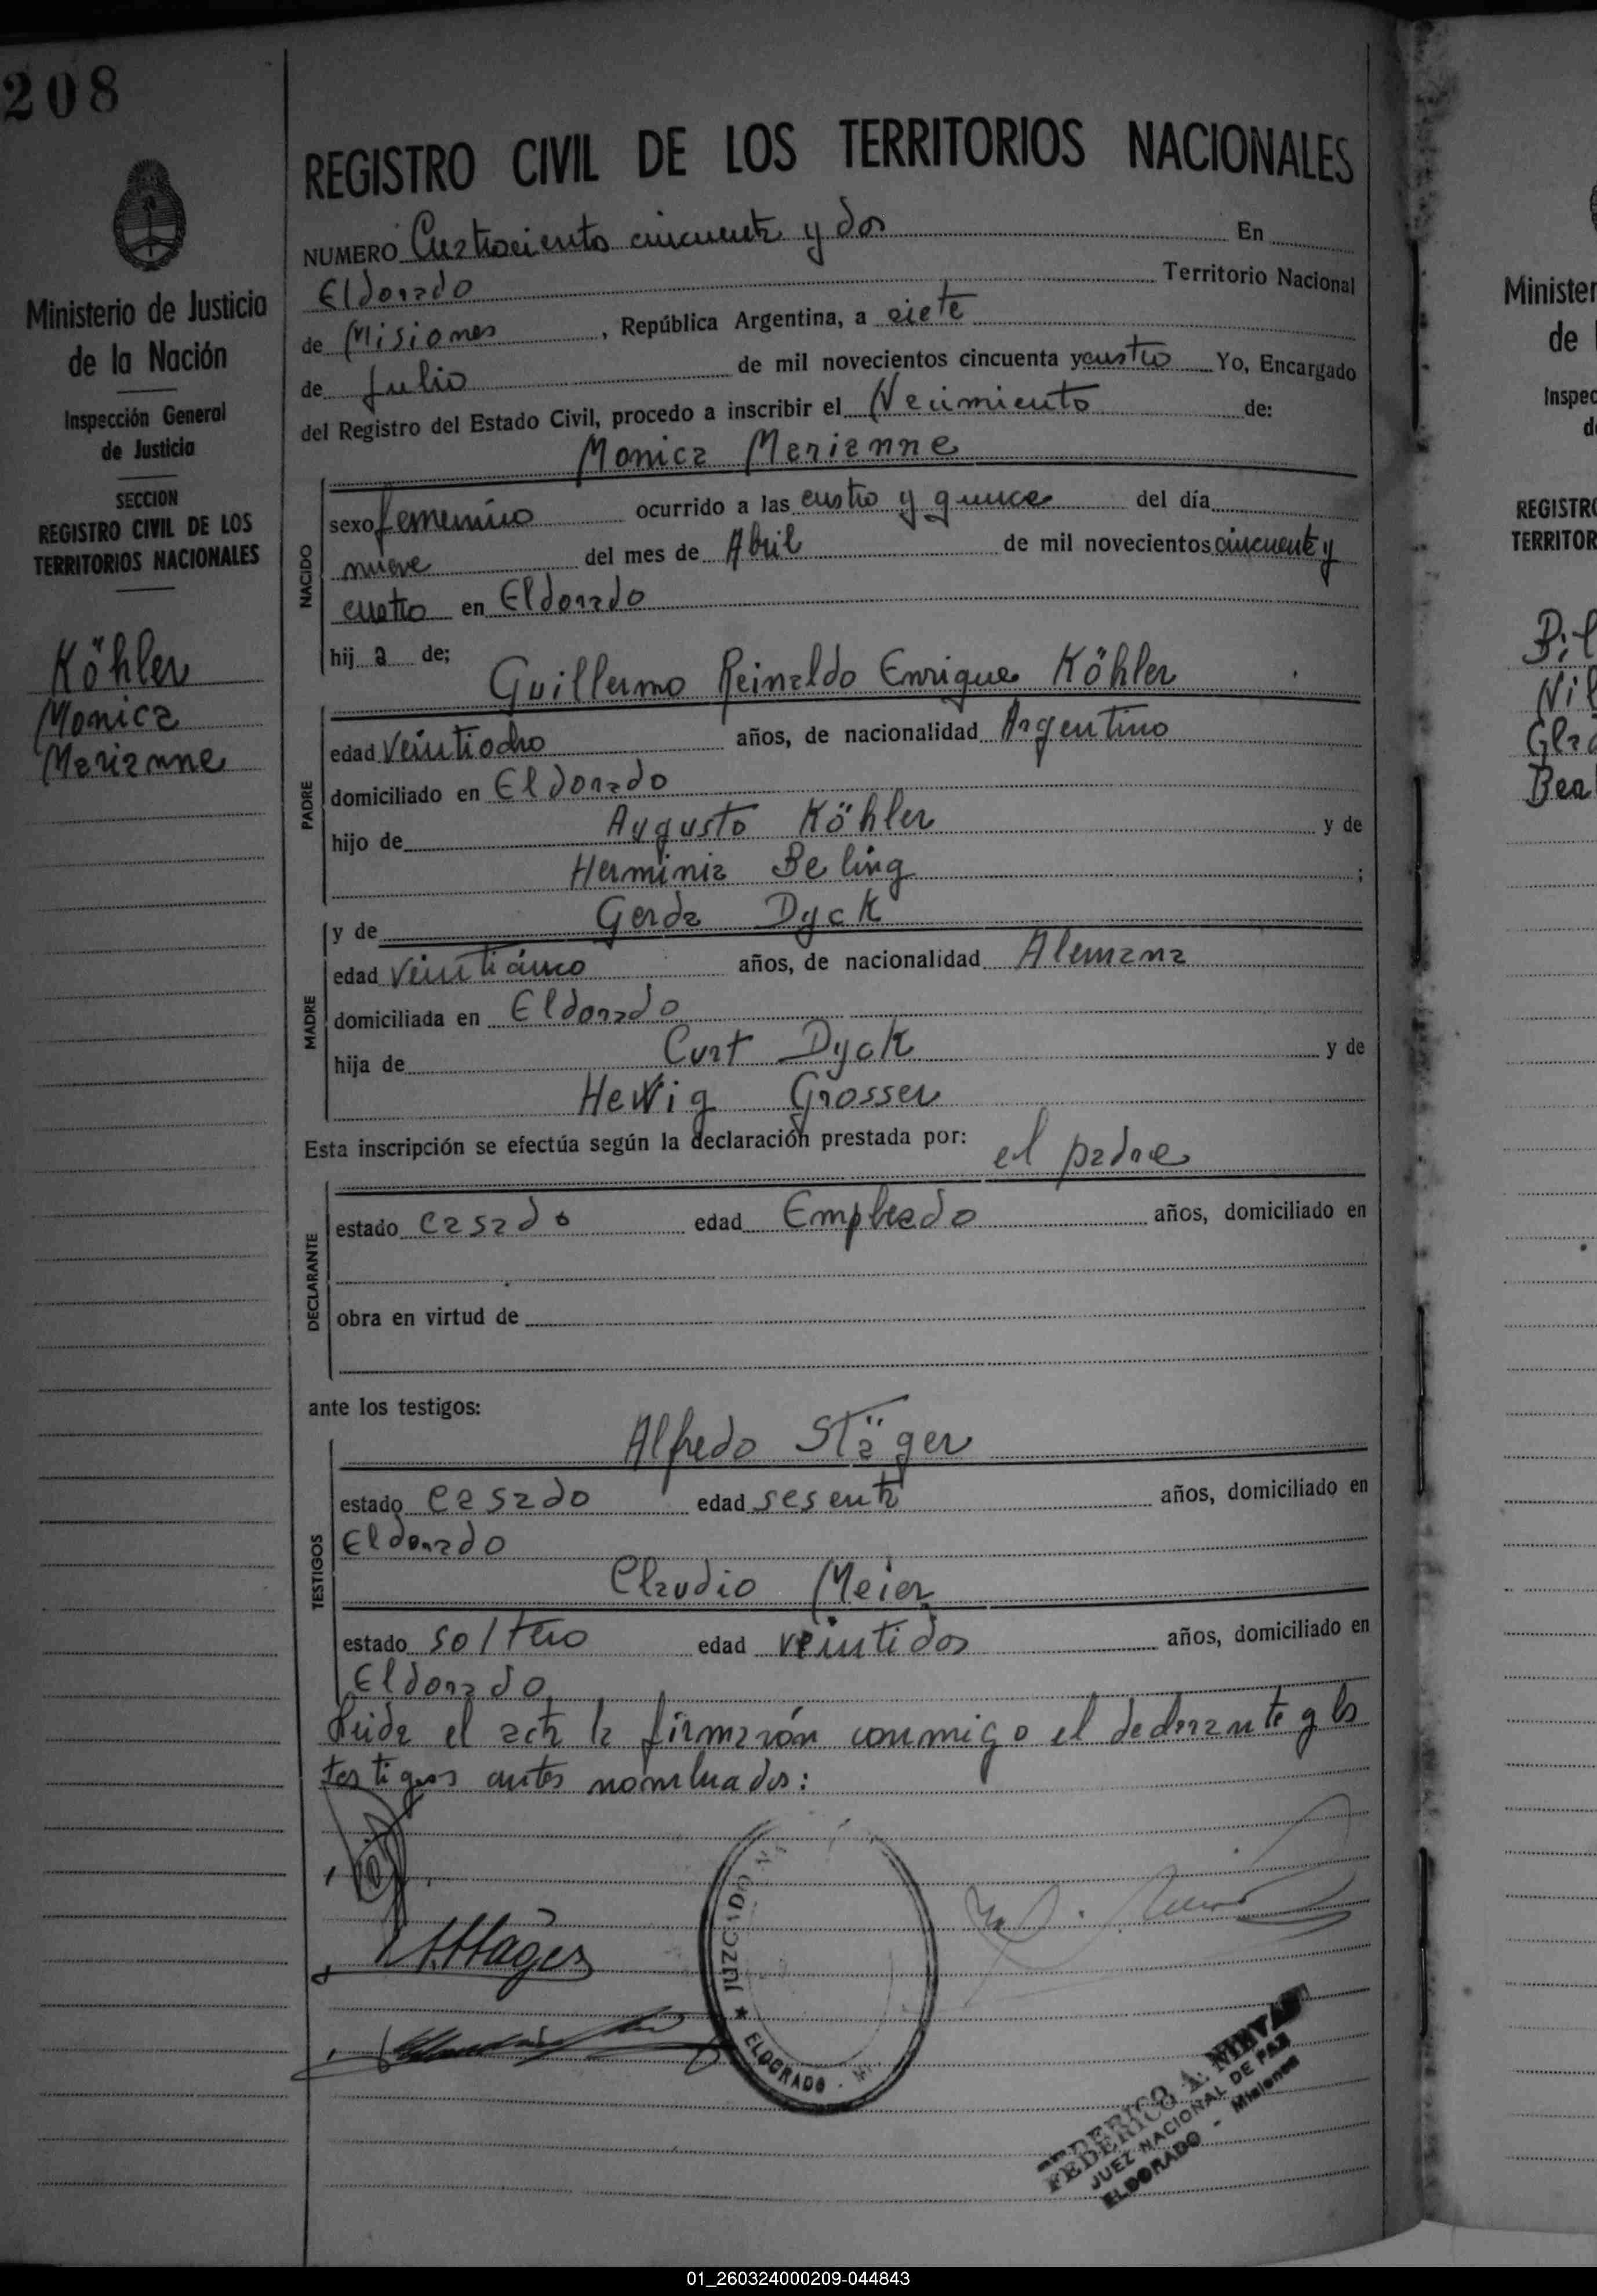 208
REGISTRO CIVIL DE LOS TERRITORIOS NACIONALES
Ministerio de Justicia
de la Nación
Inspección General
de Justicia
SECCION
REGISTRO CIVIL DE LOS
TERRITORIOS NACIONALES
Köhler
Monica
Marianne
NUMERO Cuatrociento cincuenta y dos En
Eldorado Territorio Nacional
de Misiones, República Argentina, a siete
de Julio de mil novecientos cincuenta y cuatro Yo, Encargado
del Registro del Estado Civil, procedo a inscribir el Nacimiento de:
Monica Marianne
NACIDO
sexo femenino ocurrido a las cuatro y quince del día
nueve del mes de Abril de mil novecientos cincuenta y
cuatro en Eldorado
hij a de;
Guillermo Reinaldo Enrique Köhler
PADRE
edad veintiocho años, de nacionalidad Argentino
domiciliado en Eldorado
hijo de Augusto Köhler y de
Herminia Beling ;
y de Gerda Dyck
MADRE
edad veinticinco años, de nacionalidad Alemana
domiciliada en Eldorado
hija de Curt Dyck y de
Grosser
Esta inscripción se efectúa según la declaración prestada por: el padre
DECLARANTE
estado casado edad Empleado años, domiciliado en
obra en virtud de
ante los testigos:
Alfredo Stäger
TESTIGOS
estado casado edad sesenta años, domiciliado en
Eldorado
Claudio Meier
estado soltero edad veintidos años, domiciliado en
Eldorado
Leida el acta la firmarón conmigo el declarante y los
testigos antes nombrados:
JUZGADO
★ ELDORADO
FEDERICO A.
JUEZ NACIONAL DE PAZ
ELDORADO - Misiones
Minister
de
Inspec
d
REGISTR
TERRITOR
Bea
01_260324000209-044843